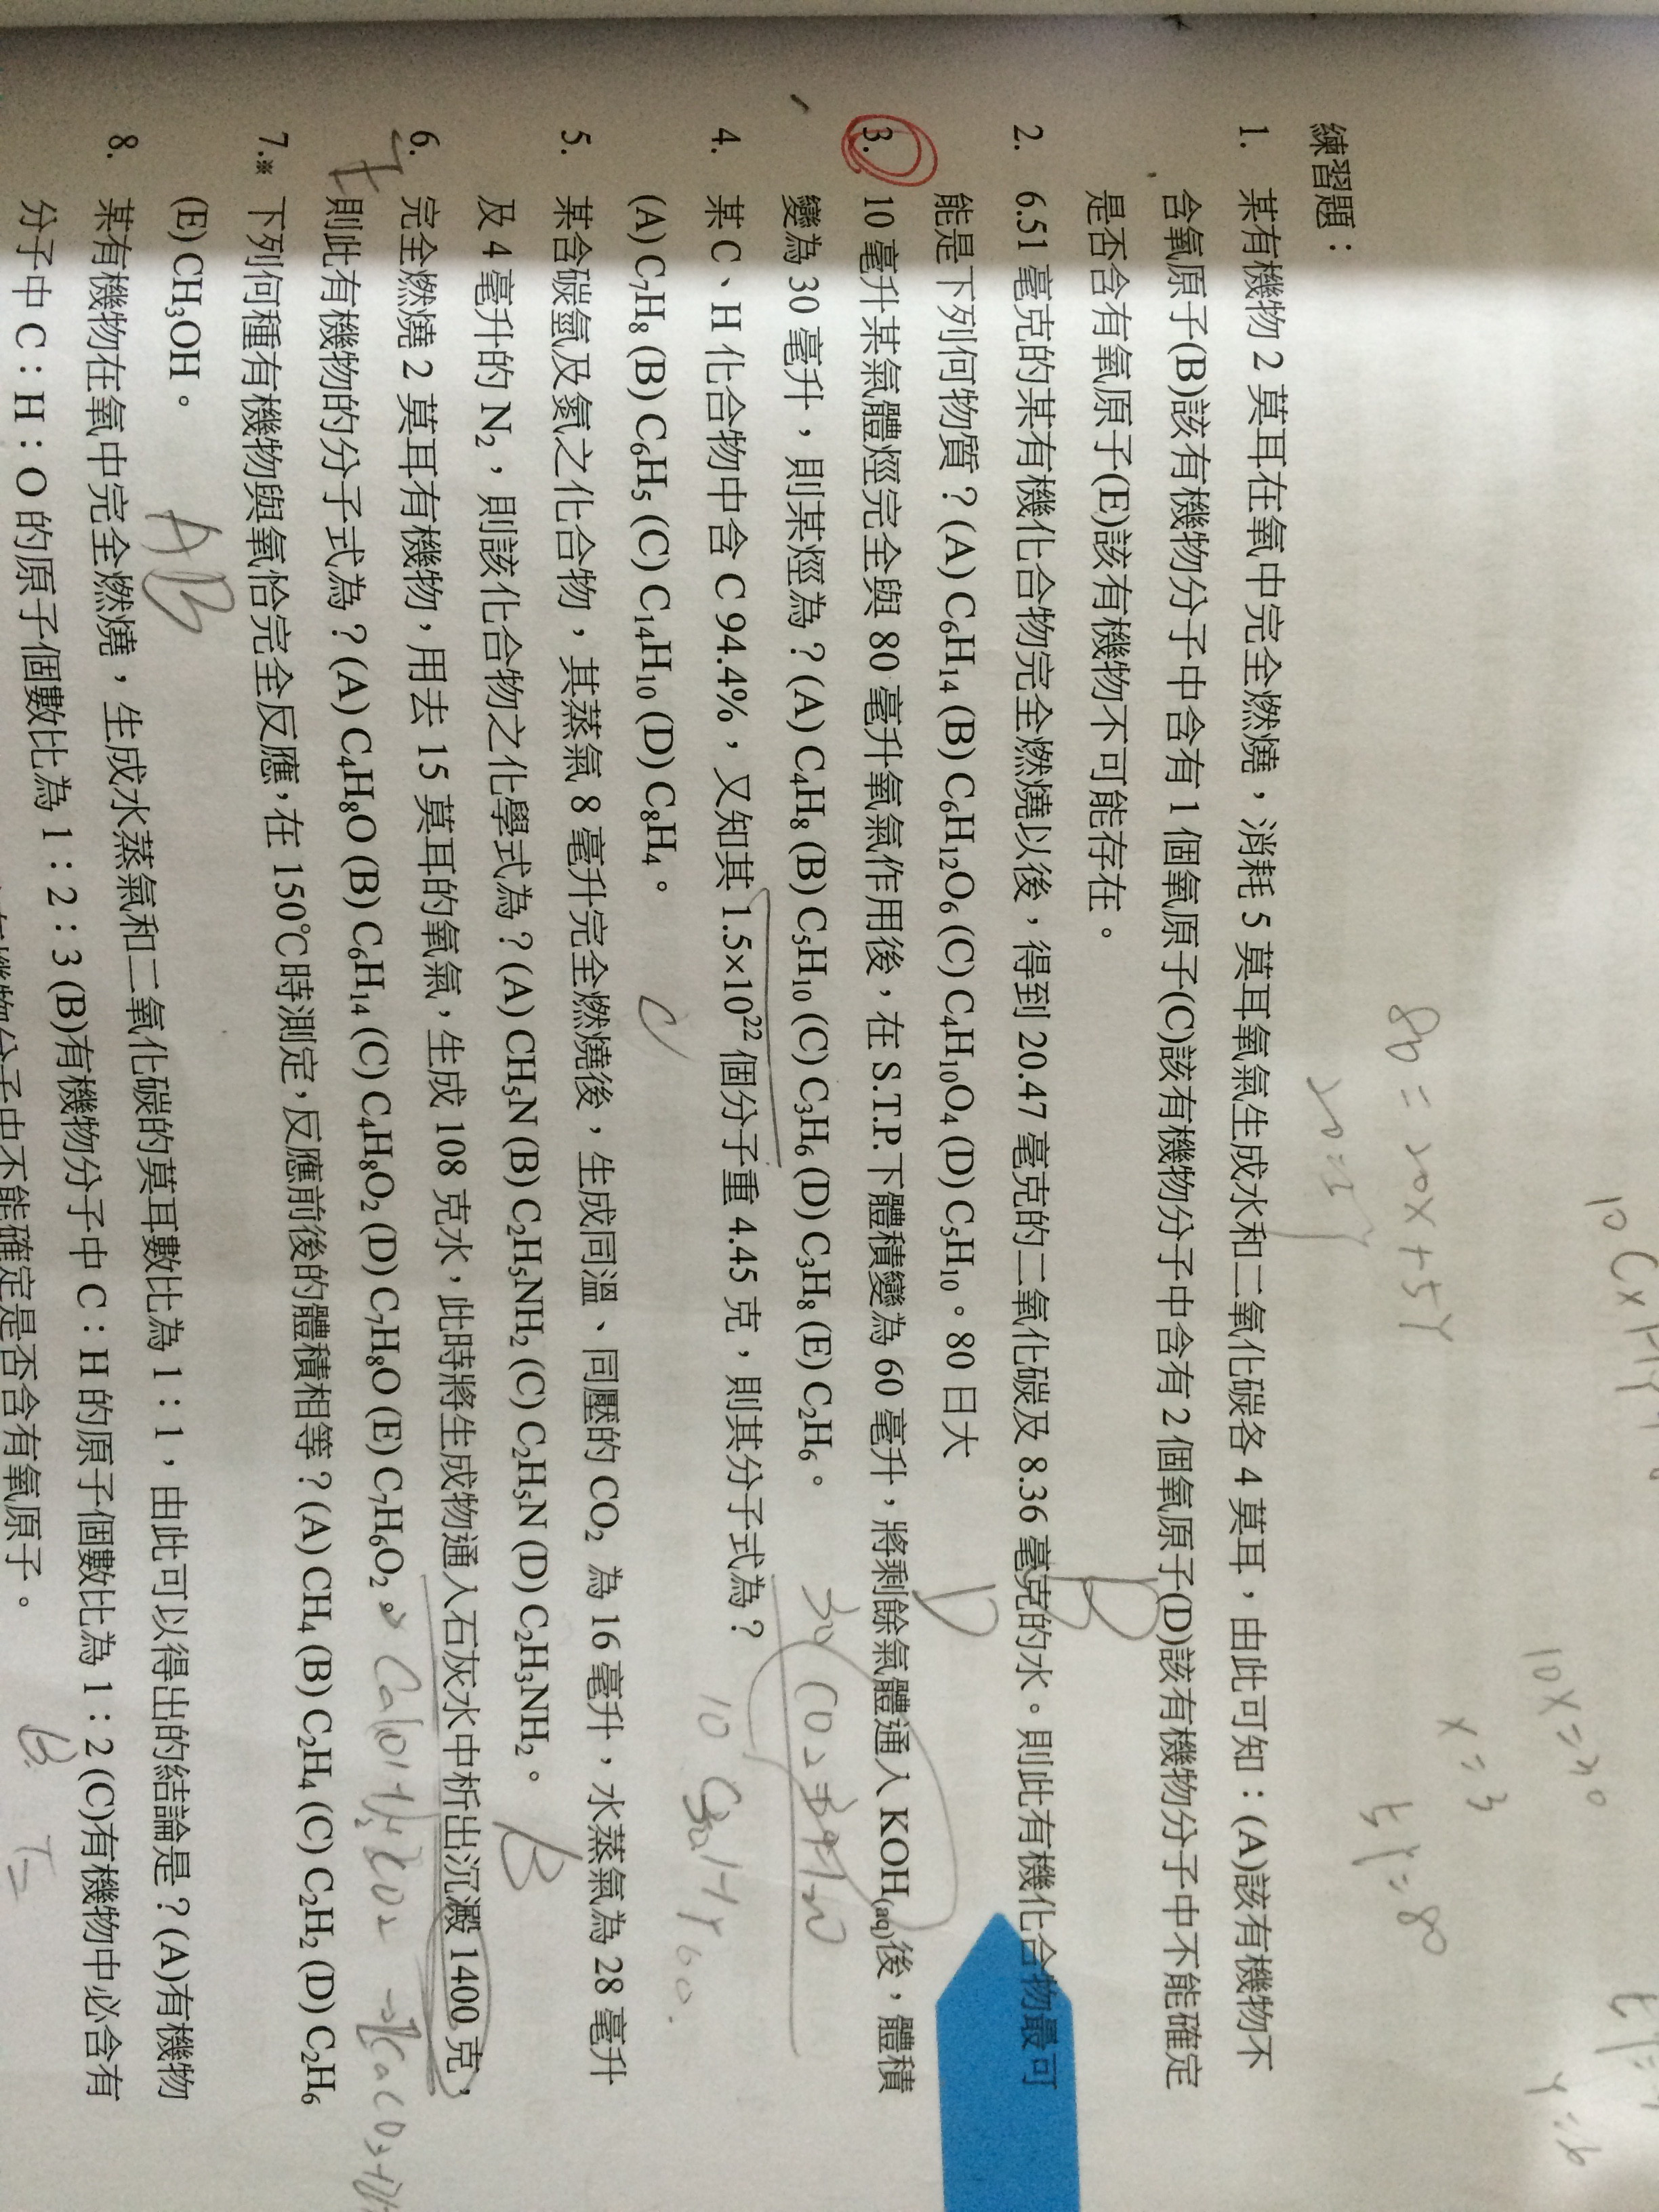 練習題：
1. 某有機物 2 莫耳在氧中完全燃燒，消耗 5 莫耳氧氣生成水和二氧化碳各 4 莫耳，由此可知：(A)該有機物不
含氧原子(B)該有機物分子中含有 1 個氧原子(C)該有機物分子中含有 2 個氧原子(D)該有機物分子中不能確定
是否含有氧原子(E)該有機物不可能存在。
B
2. 6.51 毫克的某有機化合物完全燃燒以後，得到 20.47 毫克的二氧化碳及 8.36 毫克的水。則此有機化合物最可
能是下列何物質？(A) C₆H₁₄ (B) C₆H₁₂O₆ (C) C₄H₁₀O₄ (D) C₅H₁₀。80 日大
D
3. 10 毫升某氣體烴完全與 80 毫升氧氣作用後，在 S.T.P.下體積變為 60 毫升，將剩餘氣體通入 KOH(aq)後，體積
變為 30 毫升，則某烴為？(A) C₄H₈ (B) C₅H₁₀ (C) C₃H₆ (D) C₃H₈ (E) C₂H₆。
4. 某 C、H 化合物中含 C 94.4%，又知其 1.5×10²² 個分子重 4.45 克，則其分子式為？
(A) C₇H₈ (B) C₆H₅ (C) C₁₄H₁₀ (D) C₈H₄。
C
5. 某含碳氫及氮之化合物，其蒸氣 8 毫升完全燃燒後，生成同溫、同壓的 CO₂ 為 16 毫升，水蒸氣為 28 毫升
及 4 毫升的 N₂，則該化合物之化學式為？(A) CH₅N (B) C₂H₅NH₂ (C) C₂H₅N (D) C₂H₃NH₂。
B
6. 完全燃燒 2 莫耳有機物，用去 15 莫耳的氧氣，生成 108 克水，此時將生成物通入石灰水中析出沉澱 1400 克，
則此有機物的分子式為？(A) C₄H₈O (B) C₆H₁₄ (C) C₄H₈O₂ (D) C₇H₈O (E) C₇H₆O₂。
7.※ 下列何種有機物與氧恰完全反應，在 150℃時測定，反應前後的體積相等？(A) CH₄ (B) C₂H₄ (C) C₂H₂ (D) C₂H₆
(E) CH₃OH。
AB
8. 某有機物在氧中完全燃燒，生成水蒸氣和二氧化碳的莫耳數比為 1：1，由此可以得出的結論是？(A)有機物
分子中 C：H：O 的原子個數比為 1：2：3 (B)有機物分子中 C：H 的原子個數比為 1：2 (C)有機物中必含有
有機物分子中不能確定是否含有氧原子。
B
80 = 20X + 5Y
10X = 30
X = 3
5Y = 80